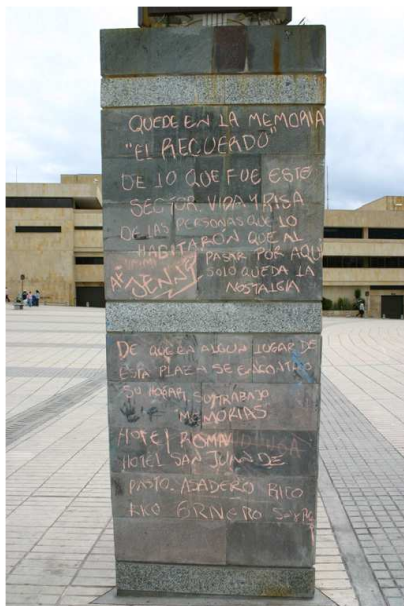 QUEDE EN LA MEMORIA
"EL RECUERDO"
DE LO QUE FUE ESTE
SECTOR VIDA Y RISA
DE LAS PERSONAS QUE LO
HAGITARÓN QUE AL
PASAR POR AQUI
SOLO QUEDA LA
NOSTALGIA
JENNY
DE QUE EN ALGUN LUGAR DE
ESTA PLAZA SE ENCONTRO
SU HOGAR, SU TRABAJO
"MEMORIAS"
HOTEL ROMA
HOTEL SAN JUAN DE
PASTO. ASADERO RICO
RICO